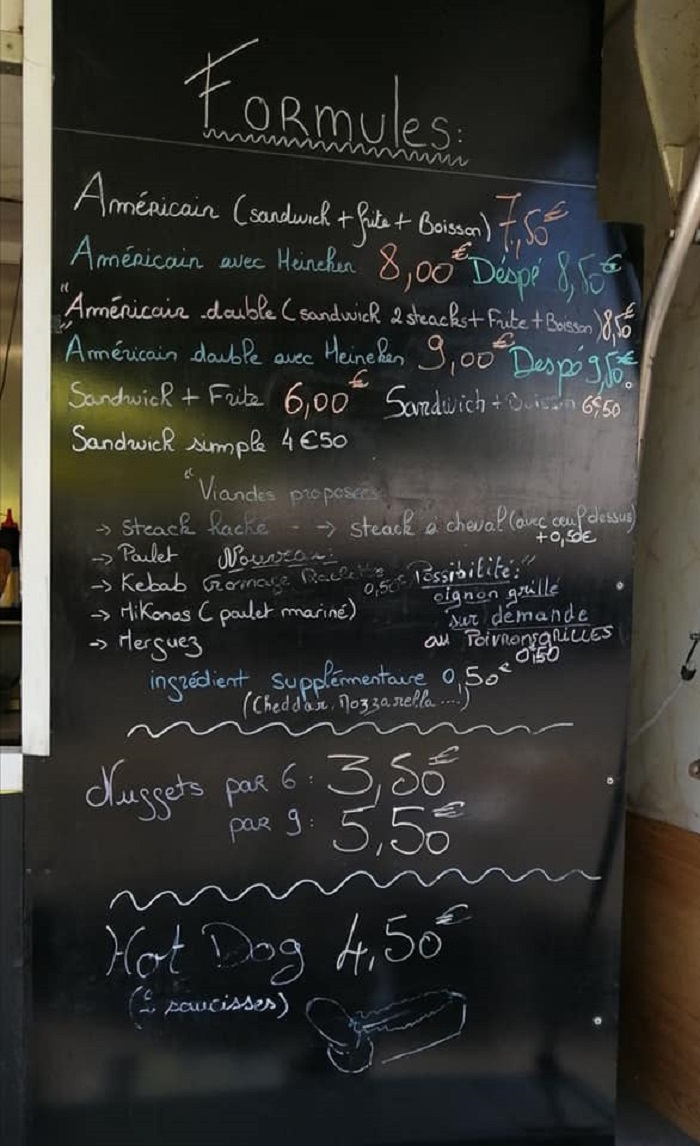 Formules:
Américain (sandwich + frite + Boisson) 7,50€
Américain avec Heineken 8,00€ Déspé 8,50€
"Américain double (sandwich 2 steacks + Frite + Boisson) 8,50
Américain double avec Heineken 9,00€ Despé 9,50€
Sandwich + Frite 6,00€ Sandwich + Boisson 6€,50
Sandwick simple 4€50
"Viandes proposées
-> Steack haché -> steack à cheval (avec œuf dessus)
+0,50€
-> Poulet Nouveau:
-> Kebab Fromage Raclette 0,50€ Possibilité:"
oignon grillé
-> Mikonos (poulet mariné) sur demande
-> Merguez ou PoivronsgRiLLES
0€50
ingrédient supplémentaire 0,50€
(Cheddar, Mozzarella ....)
Nuggets par 6: 3,50€
par 9: 5,50€
Hot Dog 4,50€
(2 saucisses)